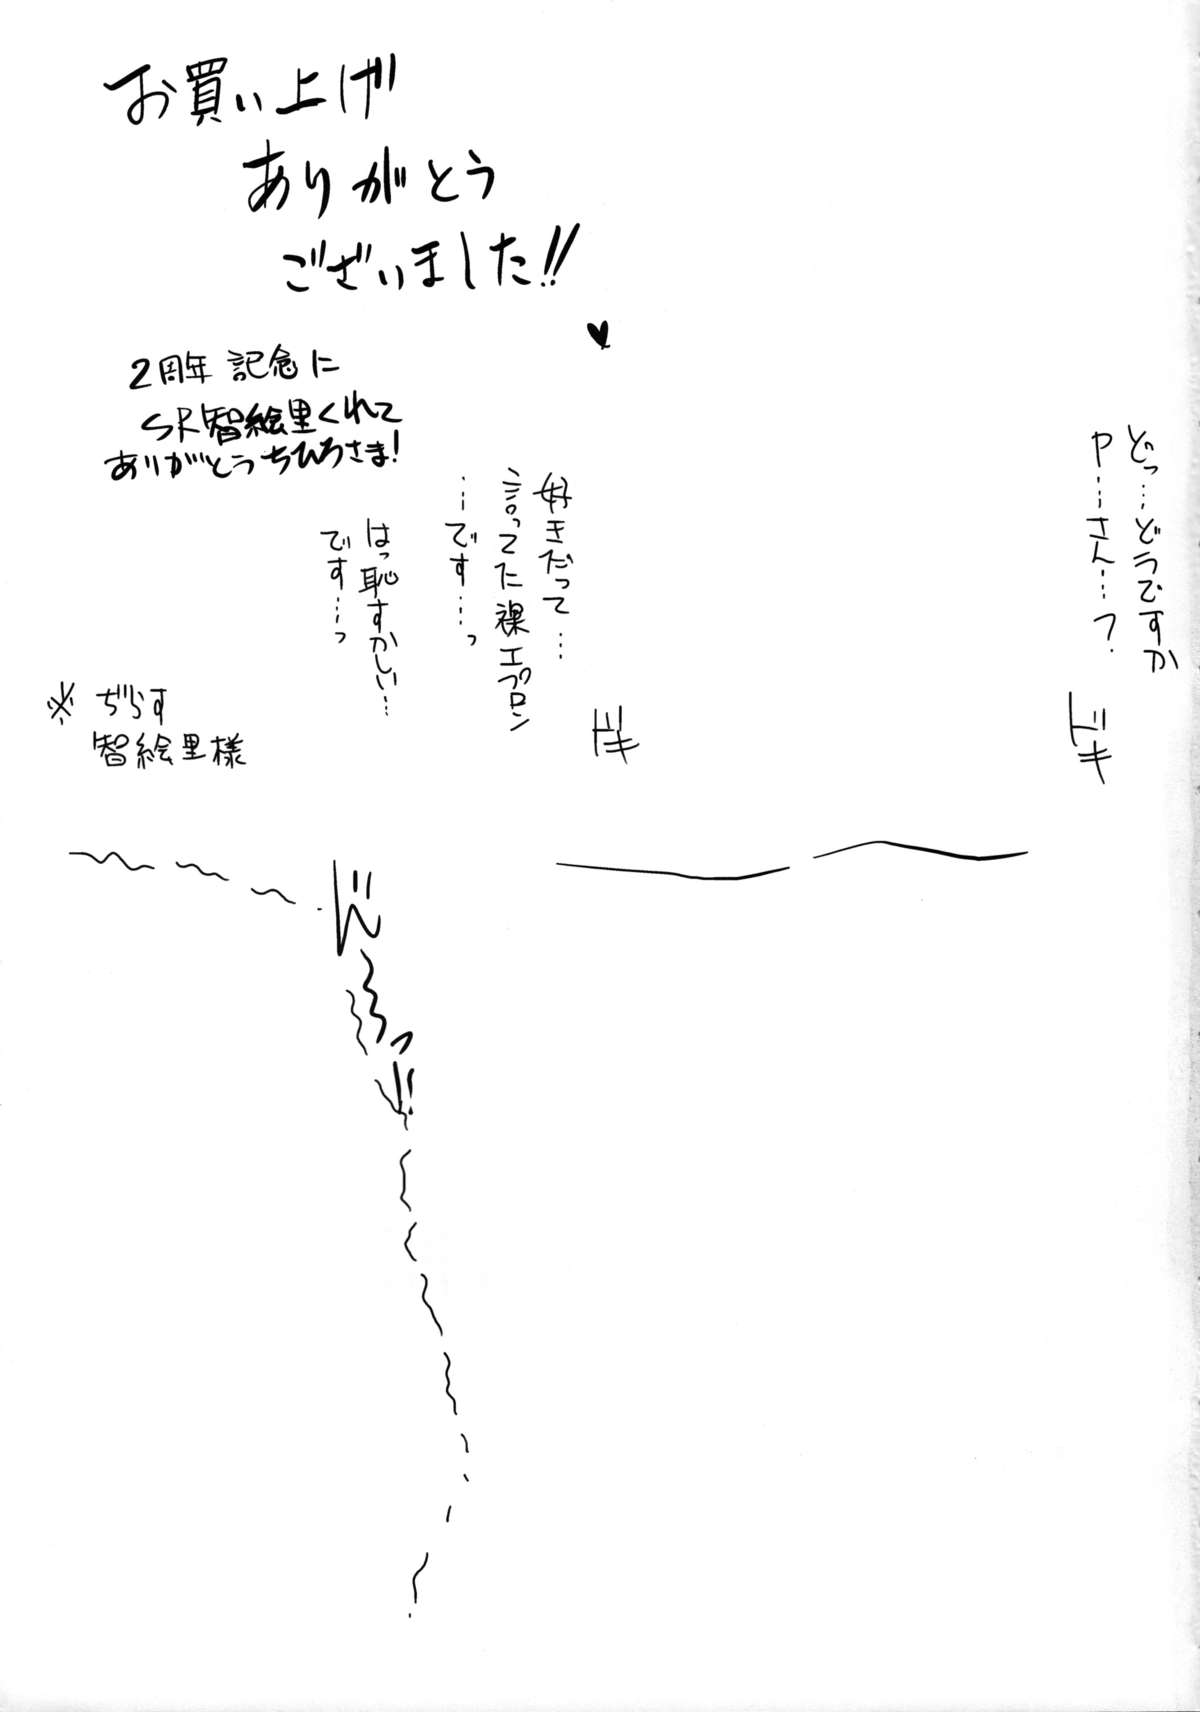 お買い上げ
ありがとう
ございました!!
♥
2周年 記念に
SR智絵里くれて
ありがとうちひろさま!
どっ…どうですか
P……さん……?
ドキ
好きだって……
言ってた裸エプロン
……です……っ
はっ恥すかしい…
です……っ
ドキ
※ ぢらす
智絵里様